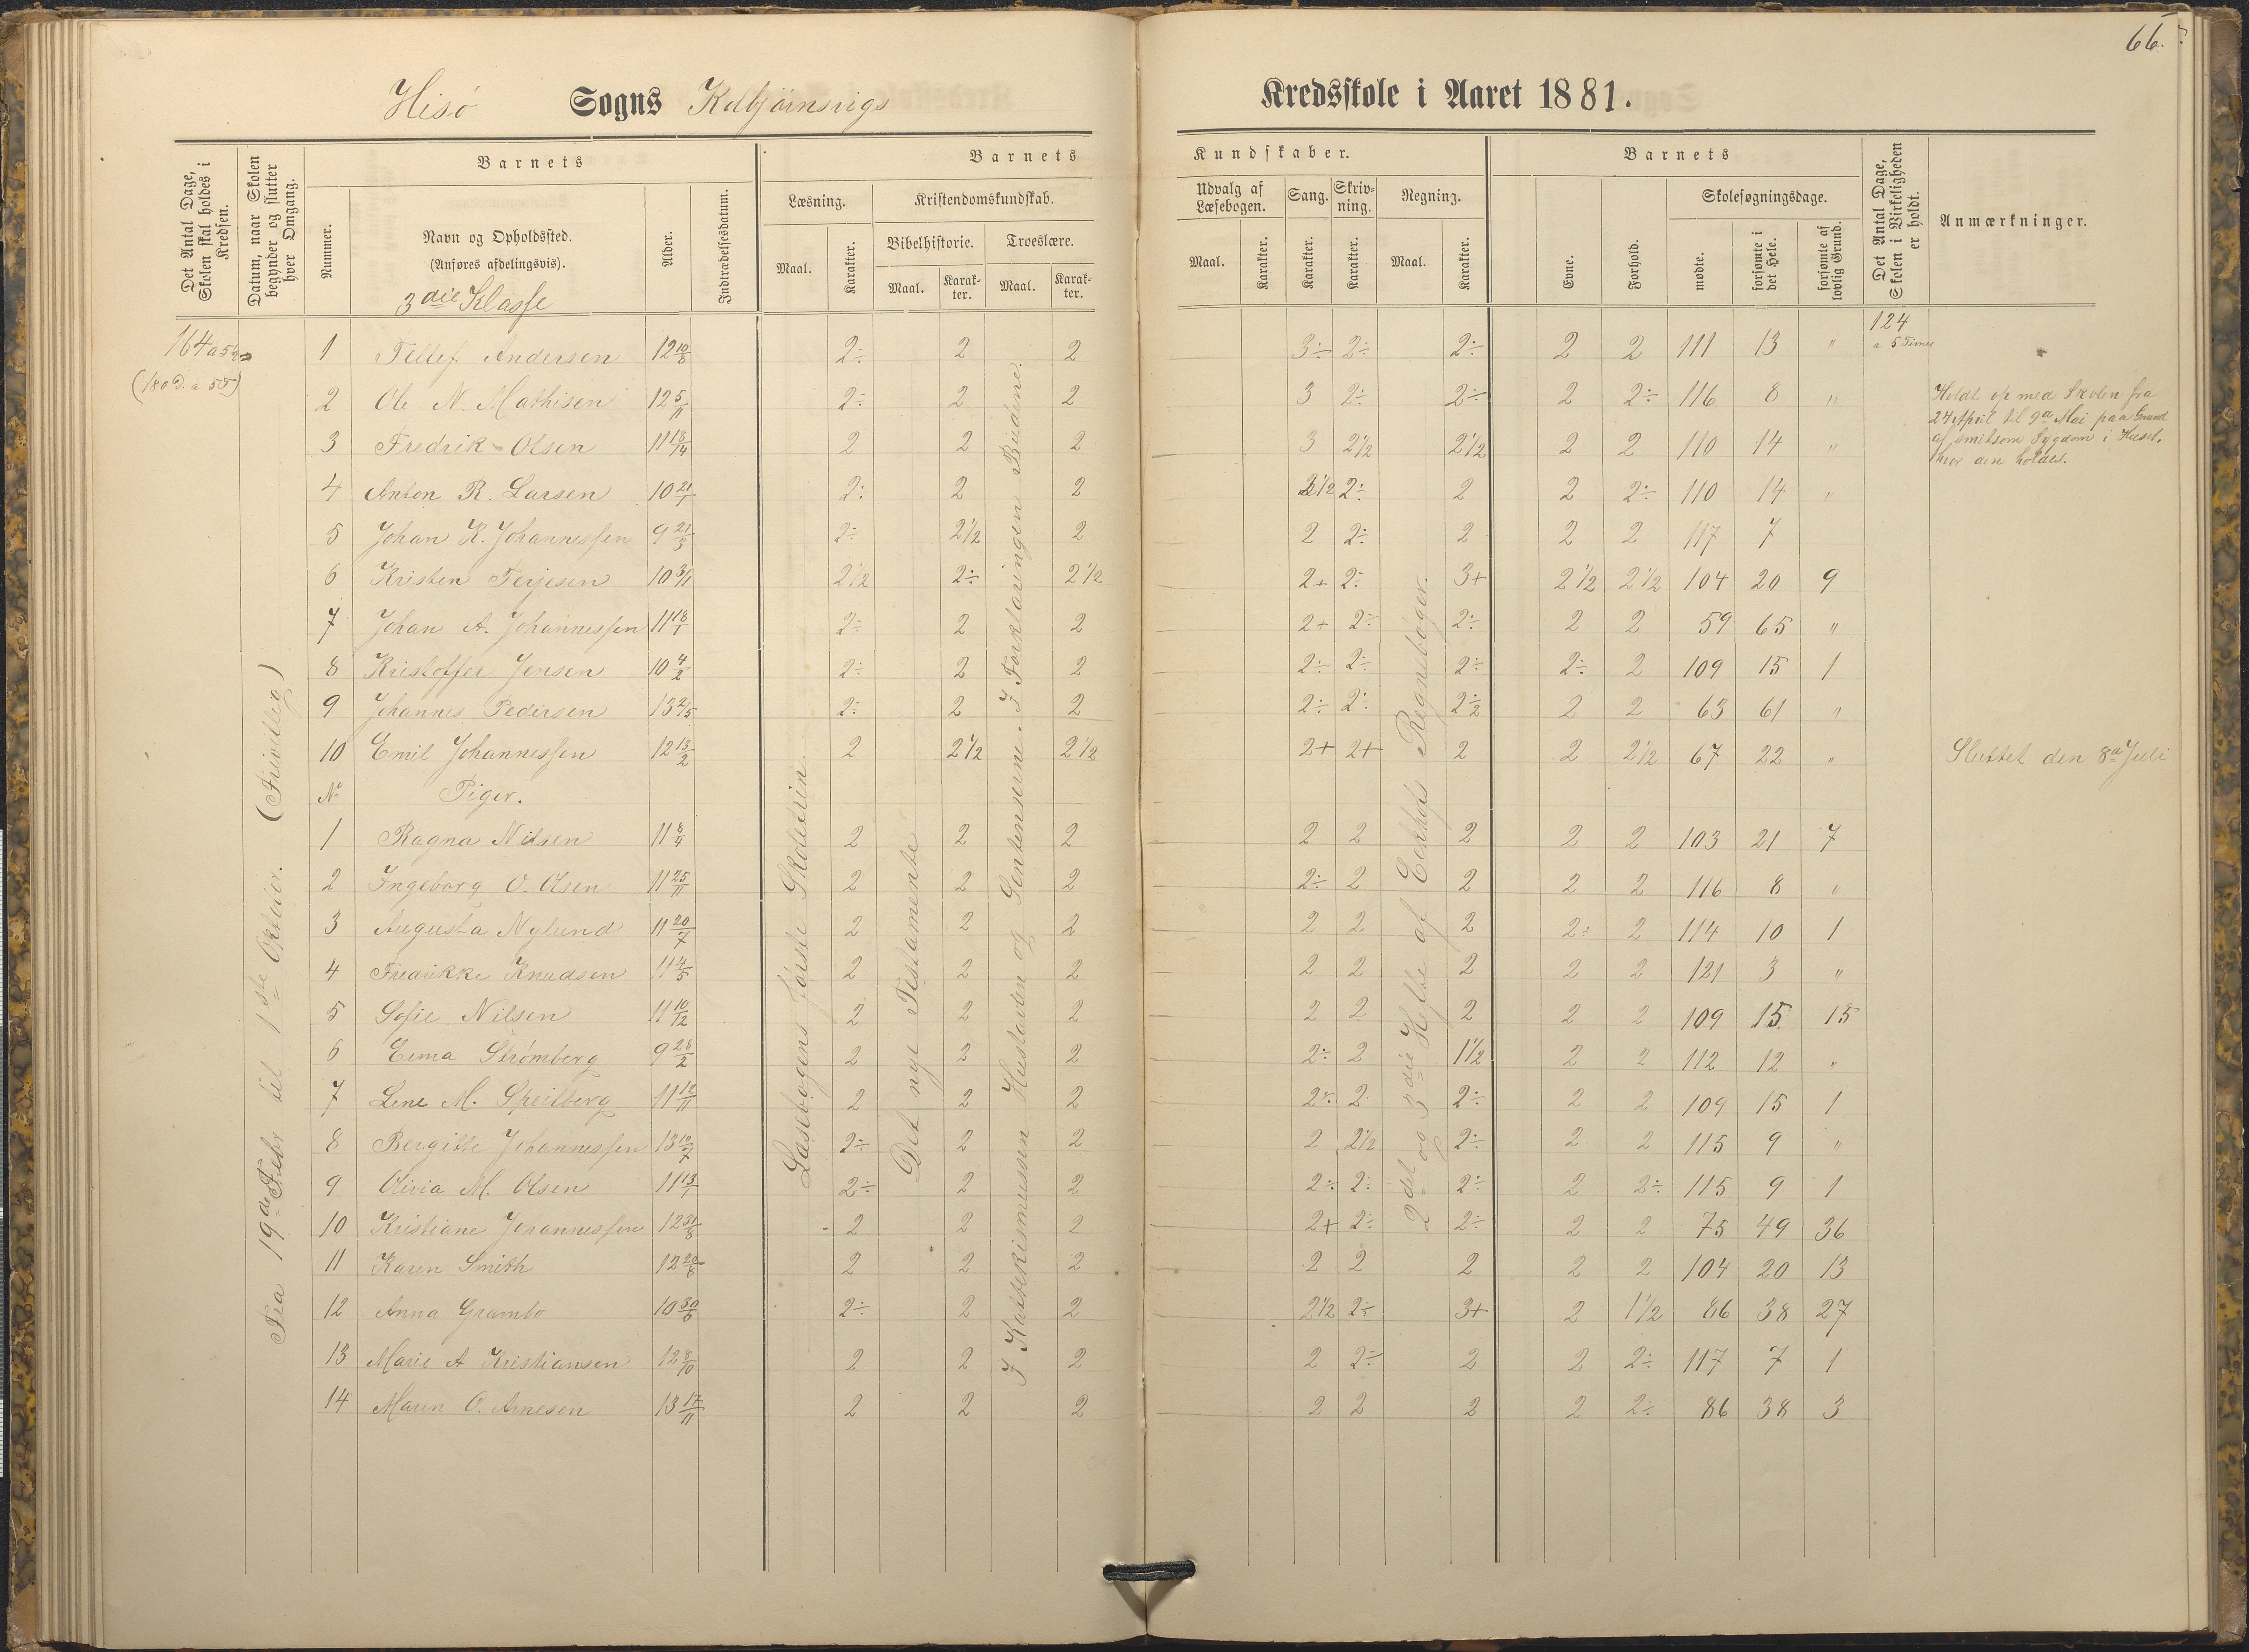 66.
Hisö Sogns Kolbjörnsvigs Kredsskole i Aaret 1881.
Det Antal Dage, Skolen skal holdes i Kredsen.
Datum, naar Skolen begynder og slutter hver Omgang.
Barnets
Nummer.
Navn og Opholdssted.
(Anføres afdelingsvis).
3die Klasse
Alder.
Indtrædelsesdatum.
Barnets Kundskaber.
Læsning.
Maal.
Karakter.
Kristendomskundskab.
Bibelhistorie.
Maal.
Karakter.
Troeslære.
Maal.
Karakter.
Udvalg af Læsebogen.
Maal.
Karakter.
Sang.
Karakter.
Skrivning.
Karakter.
Regning.
Maal.
Karakter.
Barnets
Evne.
Forhold.
Skolesøgningsdage.
mødte.
forsømte i det Hele.
forsømte af lovlig Grund.
Det Antal Dage, Skolen i Virkeligheden er holdt.
Anmærkninger.
164 a 5½
(180 D. a 5 T)
Fra 19de Febr til 1ste Oktober. (Frivillig)
Læsebogens første Skoletrin.
Det nye Testamente
I Katekismussen Hustavlen og Sentenserne. I Forklaringen Budene.
2det og 3die Hefte af Eckhofs Regnebøger.
124
a 5 Timer
1 Tellef Andersen 12 10/8 2÷ 2 2 3÷ 2÷ 2÷ 2 2 111 13 "
2 Ole N. Mathisen 12 5/11 2÷ 2 2 3 2÷ 2÷ 2 2÷ 116 8 "
3 Fredrik Olsen 11 18/14 2 2 2 3 2½ 2½ 2 2 110 14 "
4 Anton R. Larsen 10 21/1 2÷ 2 2 2½ 2÷ 2 2 2÷ 110 14 "
5 Johan K. Johannessen 9 21/3 2÷ 2½ 2 2 2÷ 2 2 2 117 7
6 Kristen Terjesen 10 3/11 2½ 2÷ 2½ 2+ 2÷ 3+ 2½ 2½ 104 20 9
7 Johan A. Johannessen 11 18/1 2÷ 2 2 2+ 2÷ 2÷ 2 2 59 65 "
8 Kristoffer Jensen 10 4/2 2÷ 2 2 2÷ 2÷ 2÷ 2÷ 2 109 15 1
9 Johannes Pedersen 13 2/5 2÷ 2 2 2÷ 2÷ 2÷ 2 2 63 61 "
10 Emil Johannessen 12 13/2 2 2½ 2½ 2+ 2+ 2 2 2½ 67 22 "
Holdt op med Skolen fra
24 April til 9de Mai paa Grund
af smitsom Sygdom i Huset,
hvor den holdes.
Sluttet den 8de Juli
No Piger.
1 Ragna Nilsen 11 8/4 2 2 2 2 2 2 2 2 103 21 7
2 Ingeborg O. Olsen 11 25/11 2 2 2 2÷ 2 2 2 2 116 8 "
3 Augusta Nylund 11 20/7 2 2 2 2 2 2 2÷ 2 114 10 1
4 Fredrikke Knudsen 11 4/5 2 2 2 2 2 2 2 2 121 3 "
5 Sofie Nilsen 11 10/12 2 2 2 2 2 2 2 2 109 15 15
6 Erma Strömberg 9 28/2 2 2 2 2÷ 2 1½ 2 2 112 12 "
7 Lene M. Speilberg 11 12/11 2 2 2 2÷ 2 2÷ 2 2 109 15 1
8 Bergitte Johannessen 13 10/7 2÷ 2 2 2 2½ 2÷ 2 2 115 9 "
9 Olivia M. Olsen 11 13/1 2÷ 2 2 2÷ 2÷ 2÷ 2 2÷ 115 9 1
10 Kristiane Johannessen 12 31/8 2 2 2 2+ 2÷ 2÷ 2 2 75 49 36
11 Karen Smith 12 28/8 2 2 2 2 2 2 2 2 104 20 13
12 Anna Grambo 10 30/6 2÷ 2 2 2½ 2÷ 3+ 2 1½ 86 38 27
13 Marie A Kristiansen 12 8/10 2 2 2 2 2÷ 2 2 2÷ 117 7 1
14 Maren O. Arnesen 13 17/11 2 2 2 2 2 2 2 2÷ 86 38 3